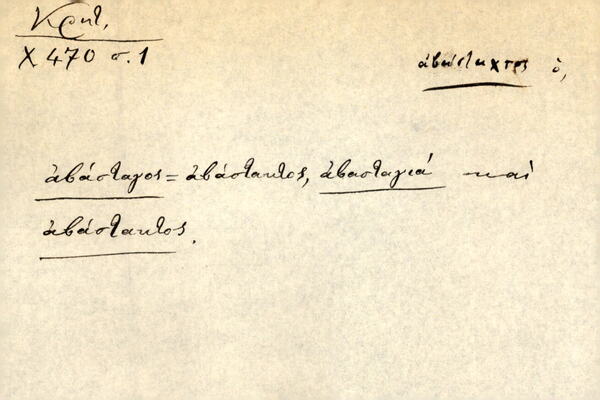 Κρητ.
Χ 470 σ. 1
ἀβάσταχτος ὁ,
ἀβάσταγος = ἀβάστακτος, ἀβασταγιά καὶ
ἀβάστακτος.